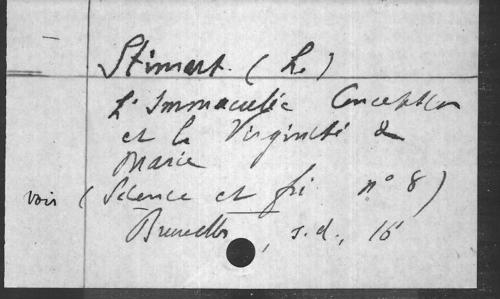 Stimart (L.)
L'Immaculée Conception
et la Virginité de
Marie
voir (Science et foi n° 8)
Bruxelles, s.d., 16°